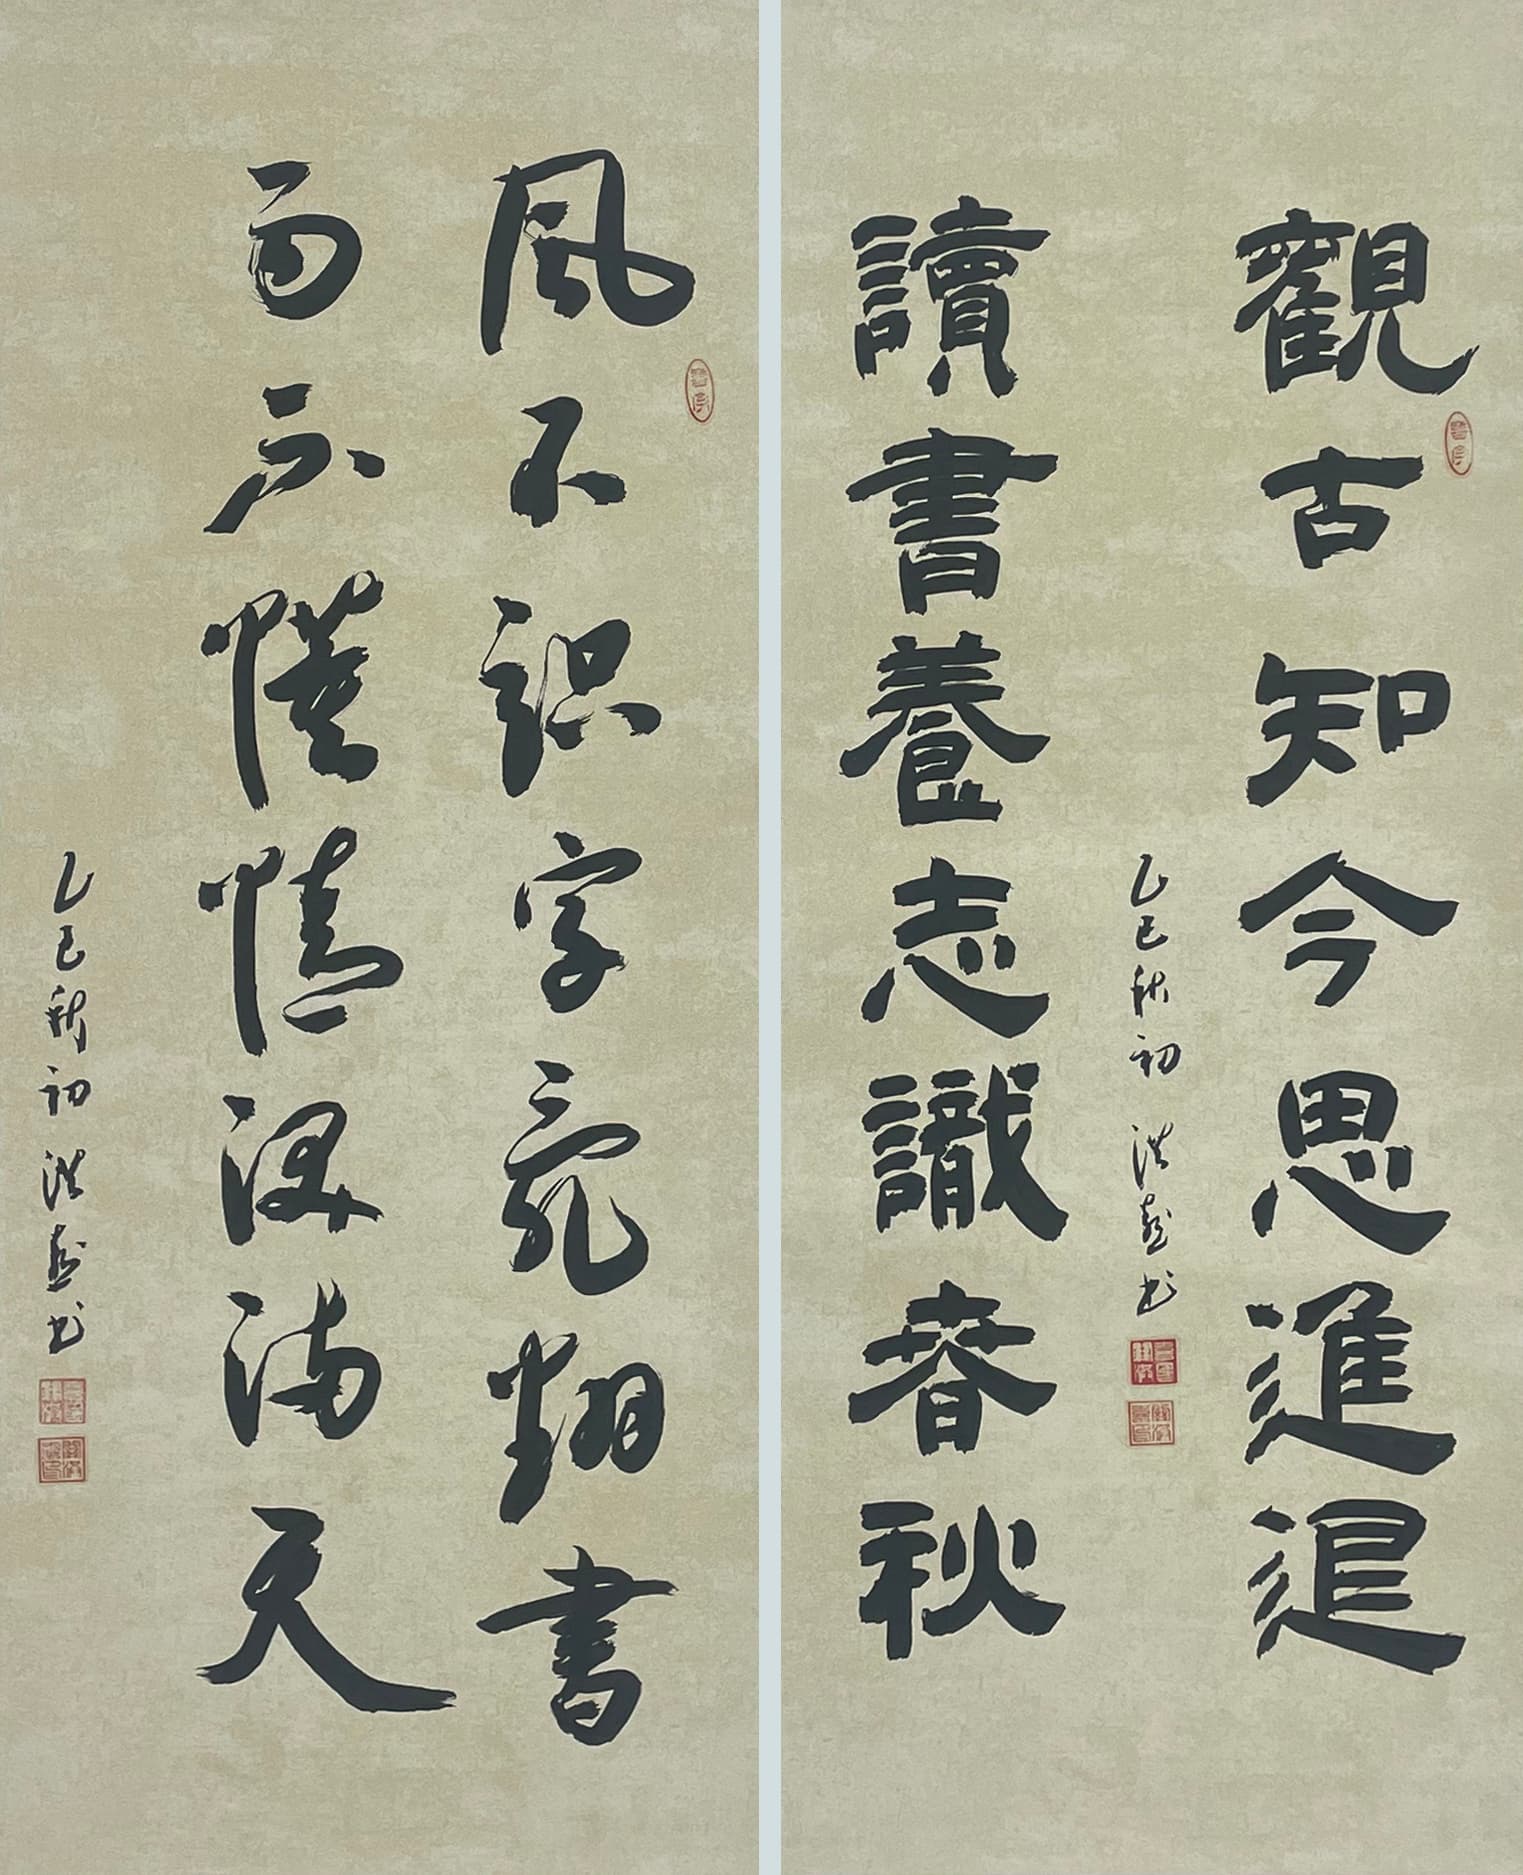 觀古知今思進退
讀書養志識春秋
乙巳秋初 洪书
風不识字亂翻書
雨不懂情淚滿天
乙巳秋初 洪书